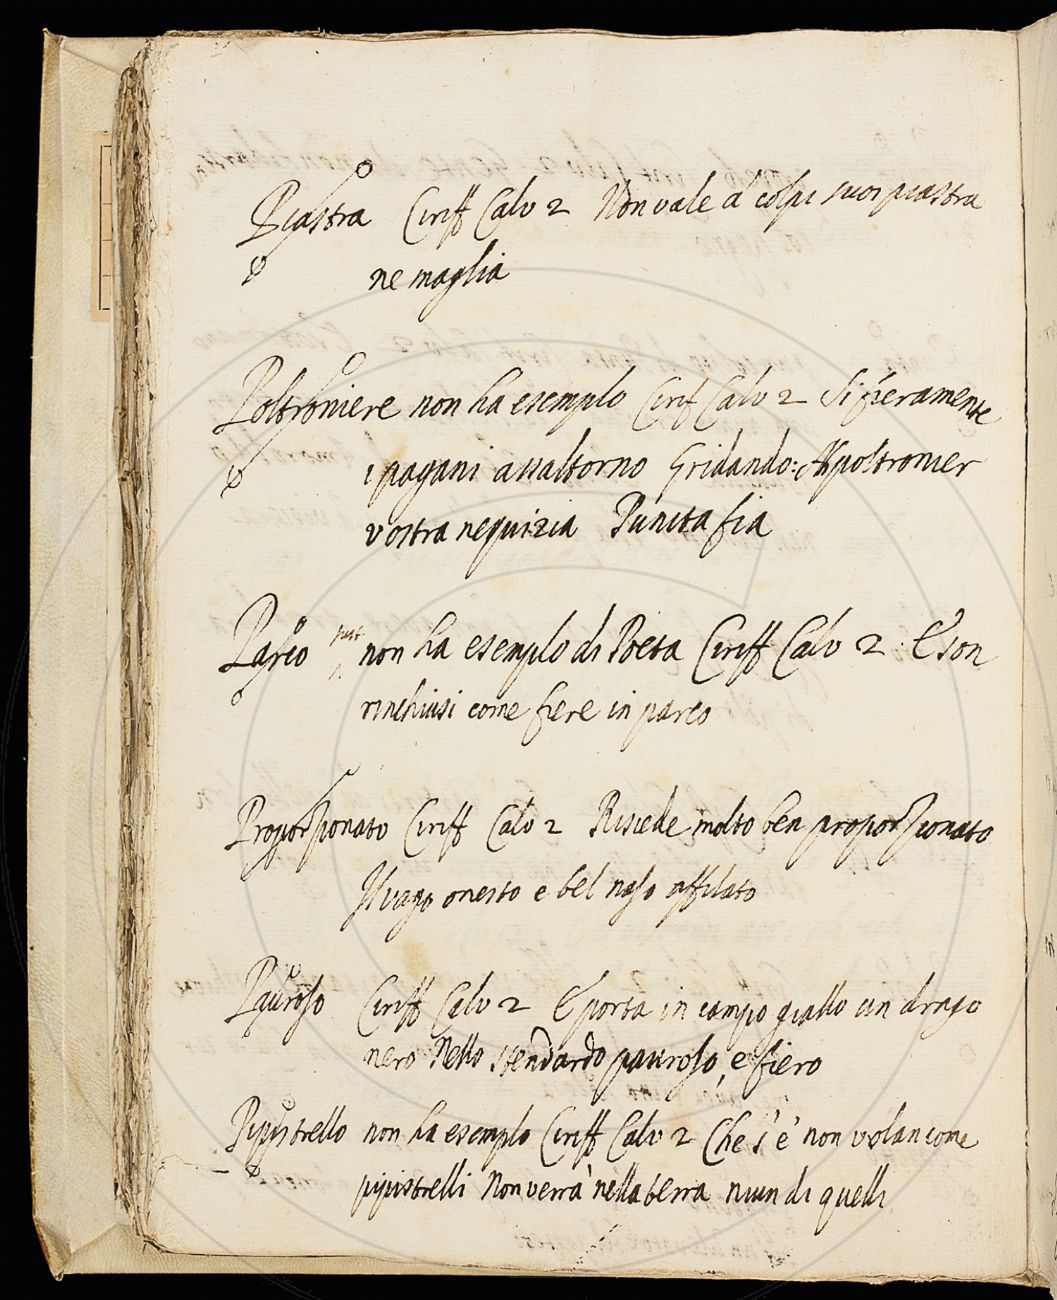 Piastra Ciriff Calv 2 Non vale a' colpi suoi piastra
ne maglia
Poltroniere non ha esempio Cirif Calv 2 Si fieramente
i pagani assaltorno Gridando: A poltronier
vostra nequizia Punita fia
Parco non ha esemplo di Poeta Ciriff Calv 2 E' son
rinchiusi come fiere in parco
Proporzionato Ciriff Calv 2 Risiede molto ben proporzionato
Il vago onesto e bel naso affilato
Pauroso Ciriff Calv 2 E' porta in campo giallo un drago
nero Nello stendardo pauroso, e fiero
Pipistrello non ha esemplo Ciriff Calv 2 Che s'e' non volan come
pipistrelli Non verrà nella terra niun di quelli